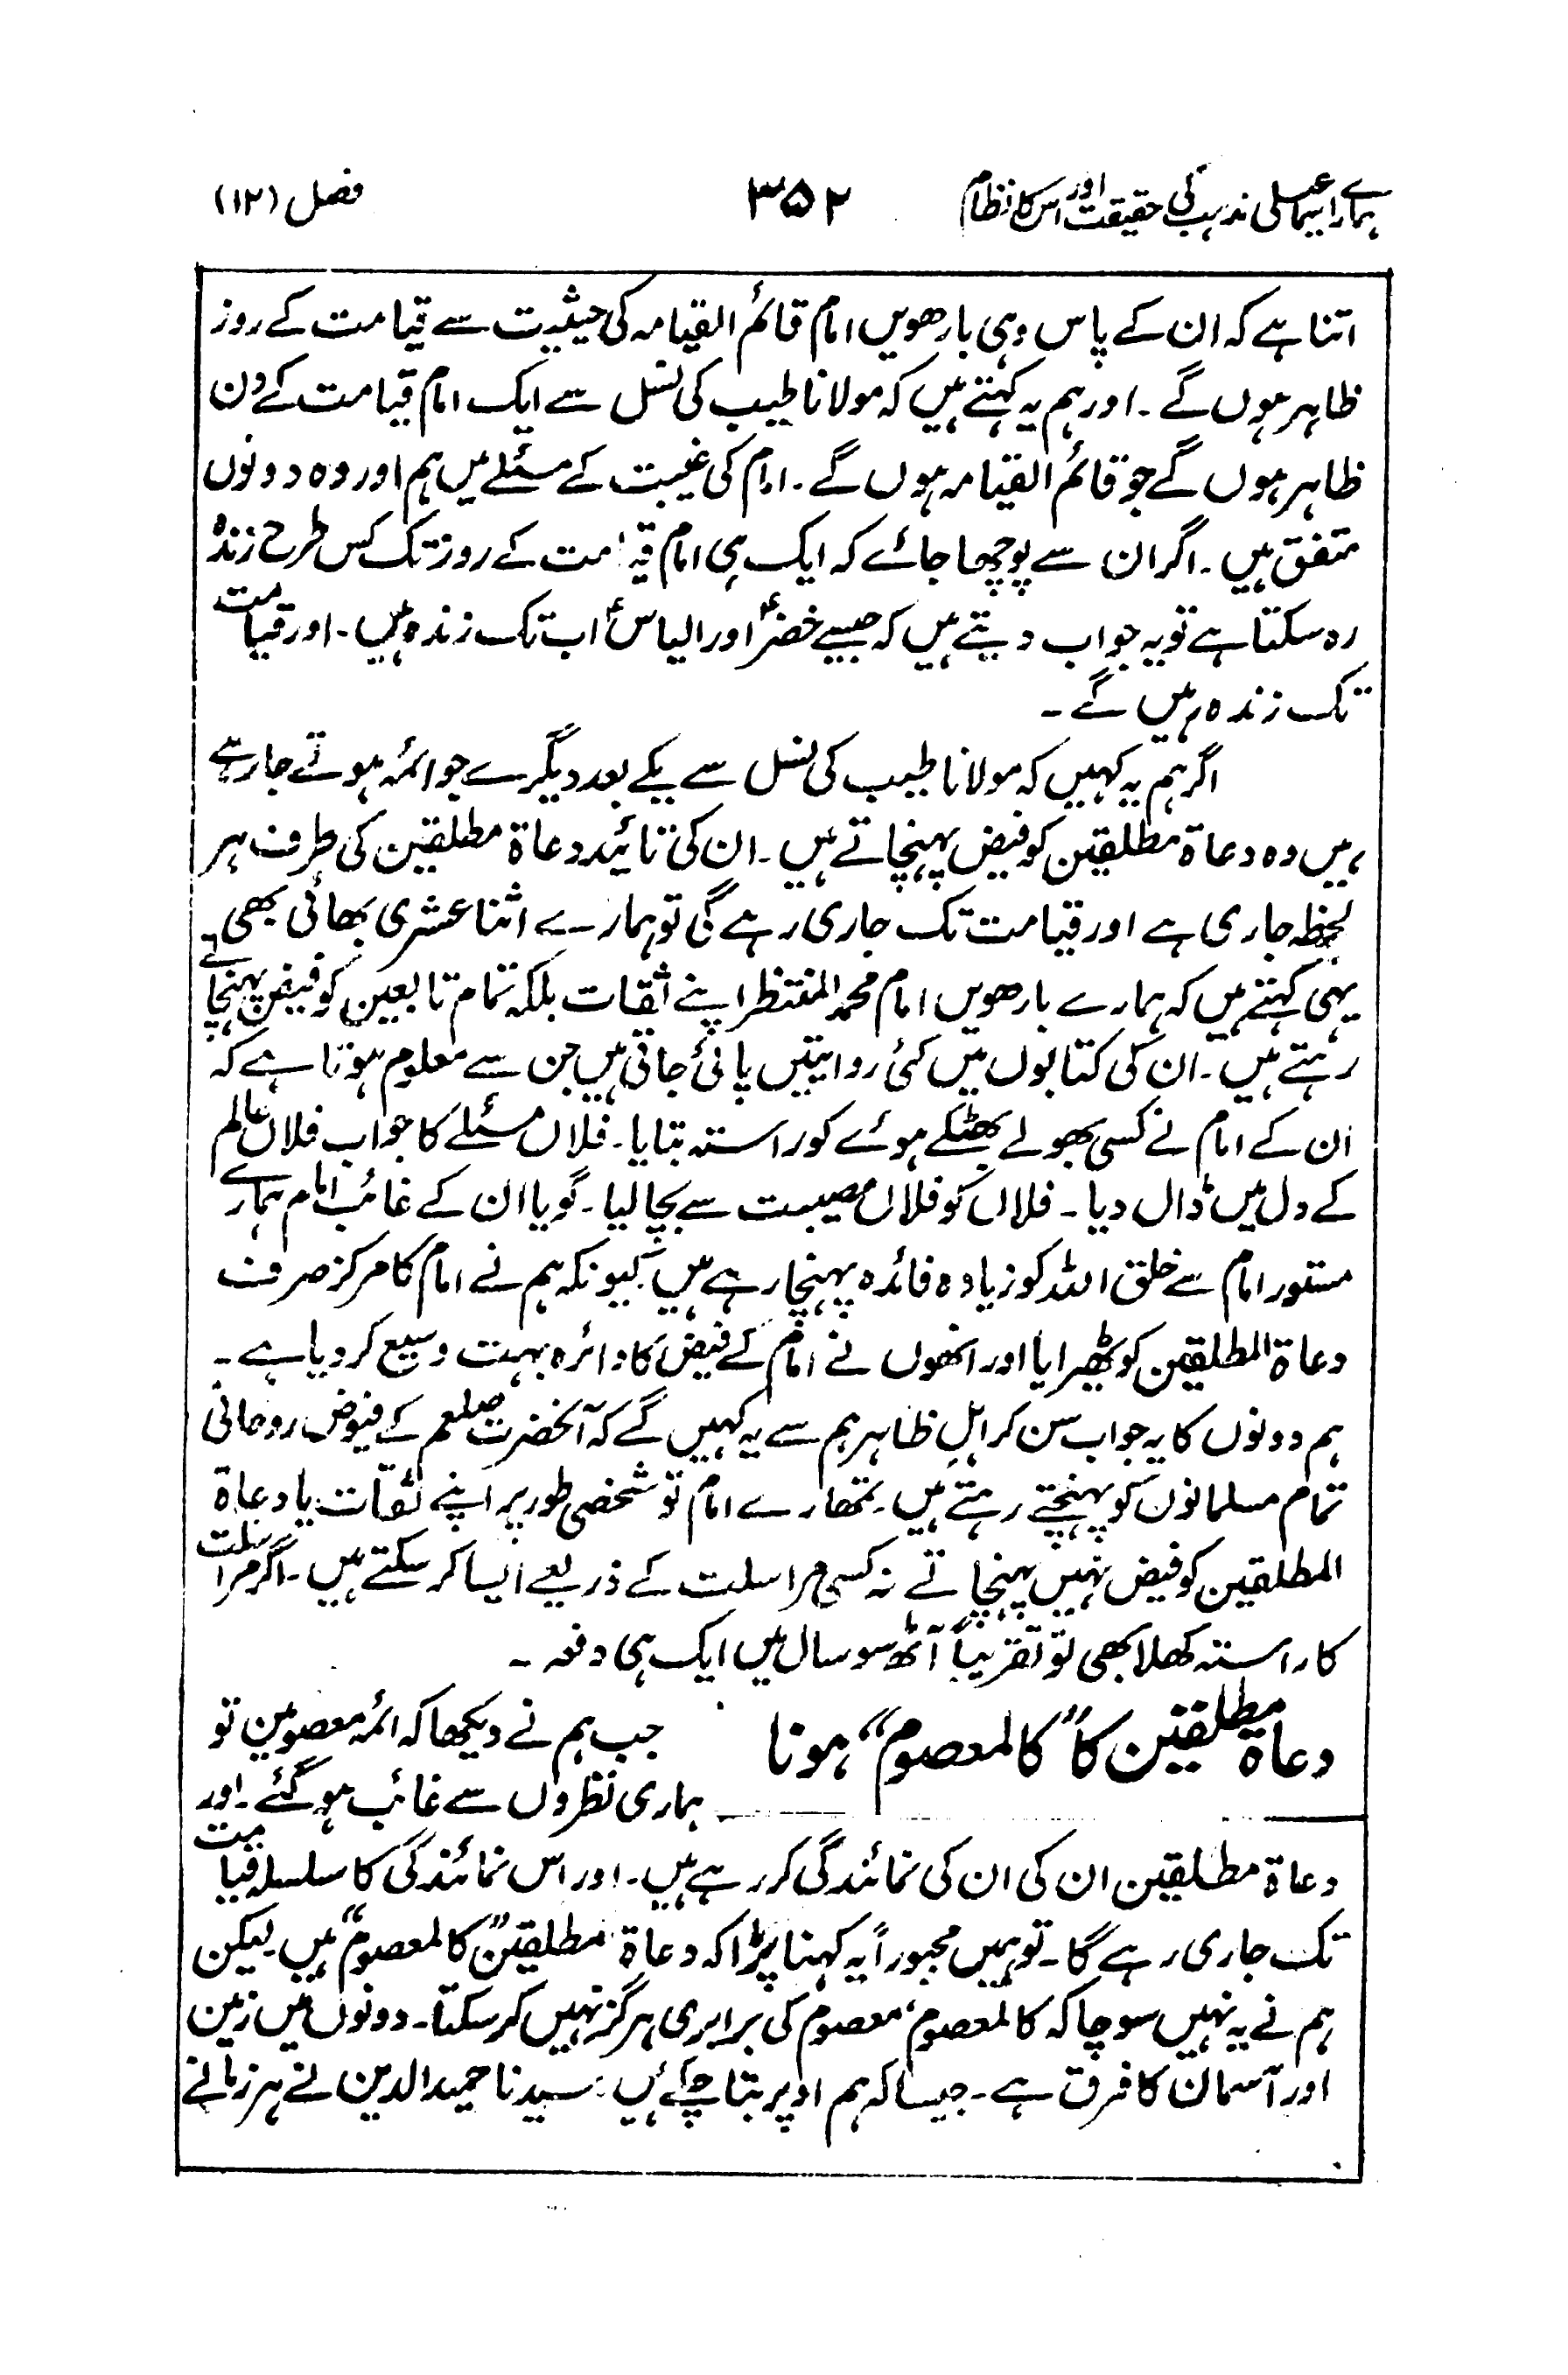 ہمارے اسماعیلی مذہب کی حقیقت اور اس کا نظام ۳۵۲ فصل (۱۲)
اتنا ہے کہ ان کے پاس وہی بارھویں امام قائم القیامہ کی حیثیت سے قیامت کے روز
ظاہر ہوں گے ۔ اور ہم یہ کہتے ہیں کہ مولانا طیب کی نسل سے ایک امام قیامت کے دن
ظاہر ہوں گے جو قائم القیامہ ہوں گے ۔ امام کی غیبت کے مسئلے میں ہم اور وہ دونوں
متفق ہیں ۔ اگر ان سے پوچھا جائے کہ ایک ہی امام قیامت کے روز تک کس طرح زندہ
رہ سکتا ہے تو یہ جواب دیتے ہیں کہ جیسے خضرؑ اور الیاسؑ اب تک زندہ ہیں ۔ اور قیامت
تک زندہ رہیں گے ۔
اگر ہم یہ کہیں کہ مولانا طیب کی نسل سے یکے بعد دیگرے جو ائمہ ہوتے جا رہے
ہیں وہ دعاۃ مطلقین کو فیض پہنچاتے ہیں ۔ ان کی تائید دعاۃ مطلقین کی طرف ہر
لحظہ جاری ہے اور قیامت تک جاری رہے گی تو ہمارے اثنا عشری بھائی بھی
یہی کہتے ہیں کہ ہمارے بارھویں امام محمد المنتظر اپنے ثقات بلکہ تمام تابعین کو فیض پہنچاتے
رہتے ہیں ۔ ان کی کتابوں میں کئی روایتیں پائی جاتی ہیں جن سے معلوم ہوتا ہے کہ
ان کے امام نے کسی بھولے بھٹکے ہوئے کو راستہ بتایا ۔ فلاں مسئلے کا جواب فلاں عالم
کے دل میں ڈال دیا ۔ فلاں کو فلاں مصیبت سے بچا لیا ۔ گویا ان کے غائب امام ہمارے
مستور امام سے خلق اللہ کو زیادہ فائدہ پہنچا رہے ہیں کیونکہ ہم نے امام کا مرکز صرف
دعاۃ المطلقین کو ٹھیرایا اور انھوں نے امام کے فیض کا دائرہ بہت وسیع کر دیا ہے ۔
ہم دونوں کا یہ جواب سن کر اہلِ ظاہر ہم سے یہ کہیں گے کہ آنحضرت صلعم کے فیوض روحانی
تمام مسلمانوں کو پہنچتے رہتے ہیں ۔ تمھارے امام تو شخصی طور پر اپنے ثقات یا دعاۃ
المطلقین کو فیض نہیں پہنچاتے نہ کسی مراسلت کے ذریعے ایسا کر سکتے ہیں ۔ اگر مراسلت
کا راستہ کھلا بھی تو تقریباً آٹھ سو سال میں ایک ہی دفعہ ۔
دعاۃ مطلقین کا ”کالمعصوم“ ہونا جب ہم نے دیکھا کہ ائمہ معصومین تو
ہماری نظروں سے غائب ہو گئے ۔ اور
دعاۃ مطلقین ان کی ان کی نمائندگی کر رہے ہیں ۔ اور اس نمائندگی کا سلسلہ قیامت
تک جاری رہے گا ۔ تو ہمیں مجبوراً یہ کہنا پڑا کہ دعاۃ مطلقین ”کالمعصوم“ ہیں لیکن
ہم نے یہ نہیں سوچا کہ کالمعصوم، معصوم کی برابری ہرگز نہیں کر سکتا ۔ دونوں میں زمین
اور آسمان کا فرق ہے ۔ جیسا کہ ہم اوپر بتا چکے ہیں سیدنا حمید الدین نے ہر زمانے